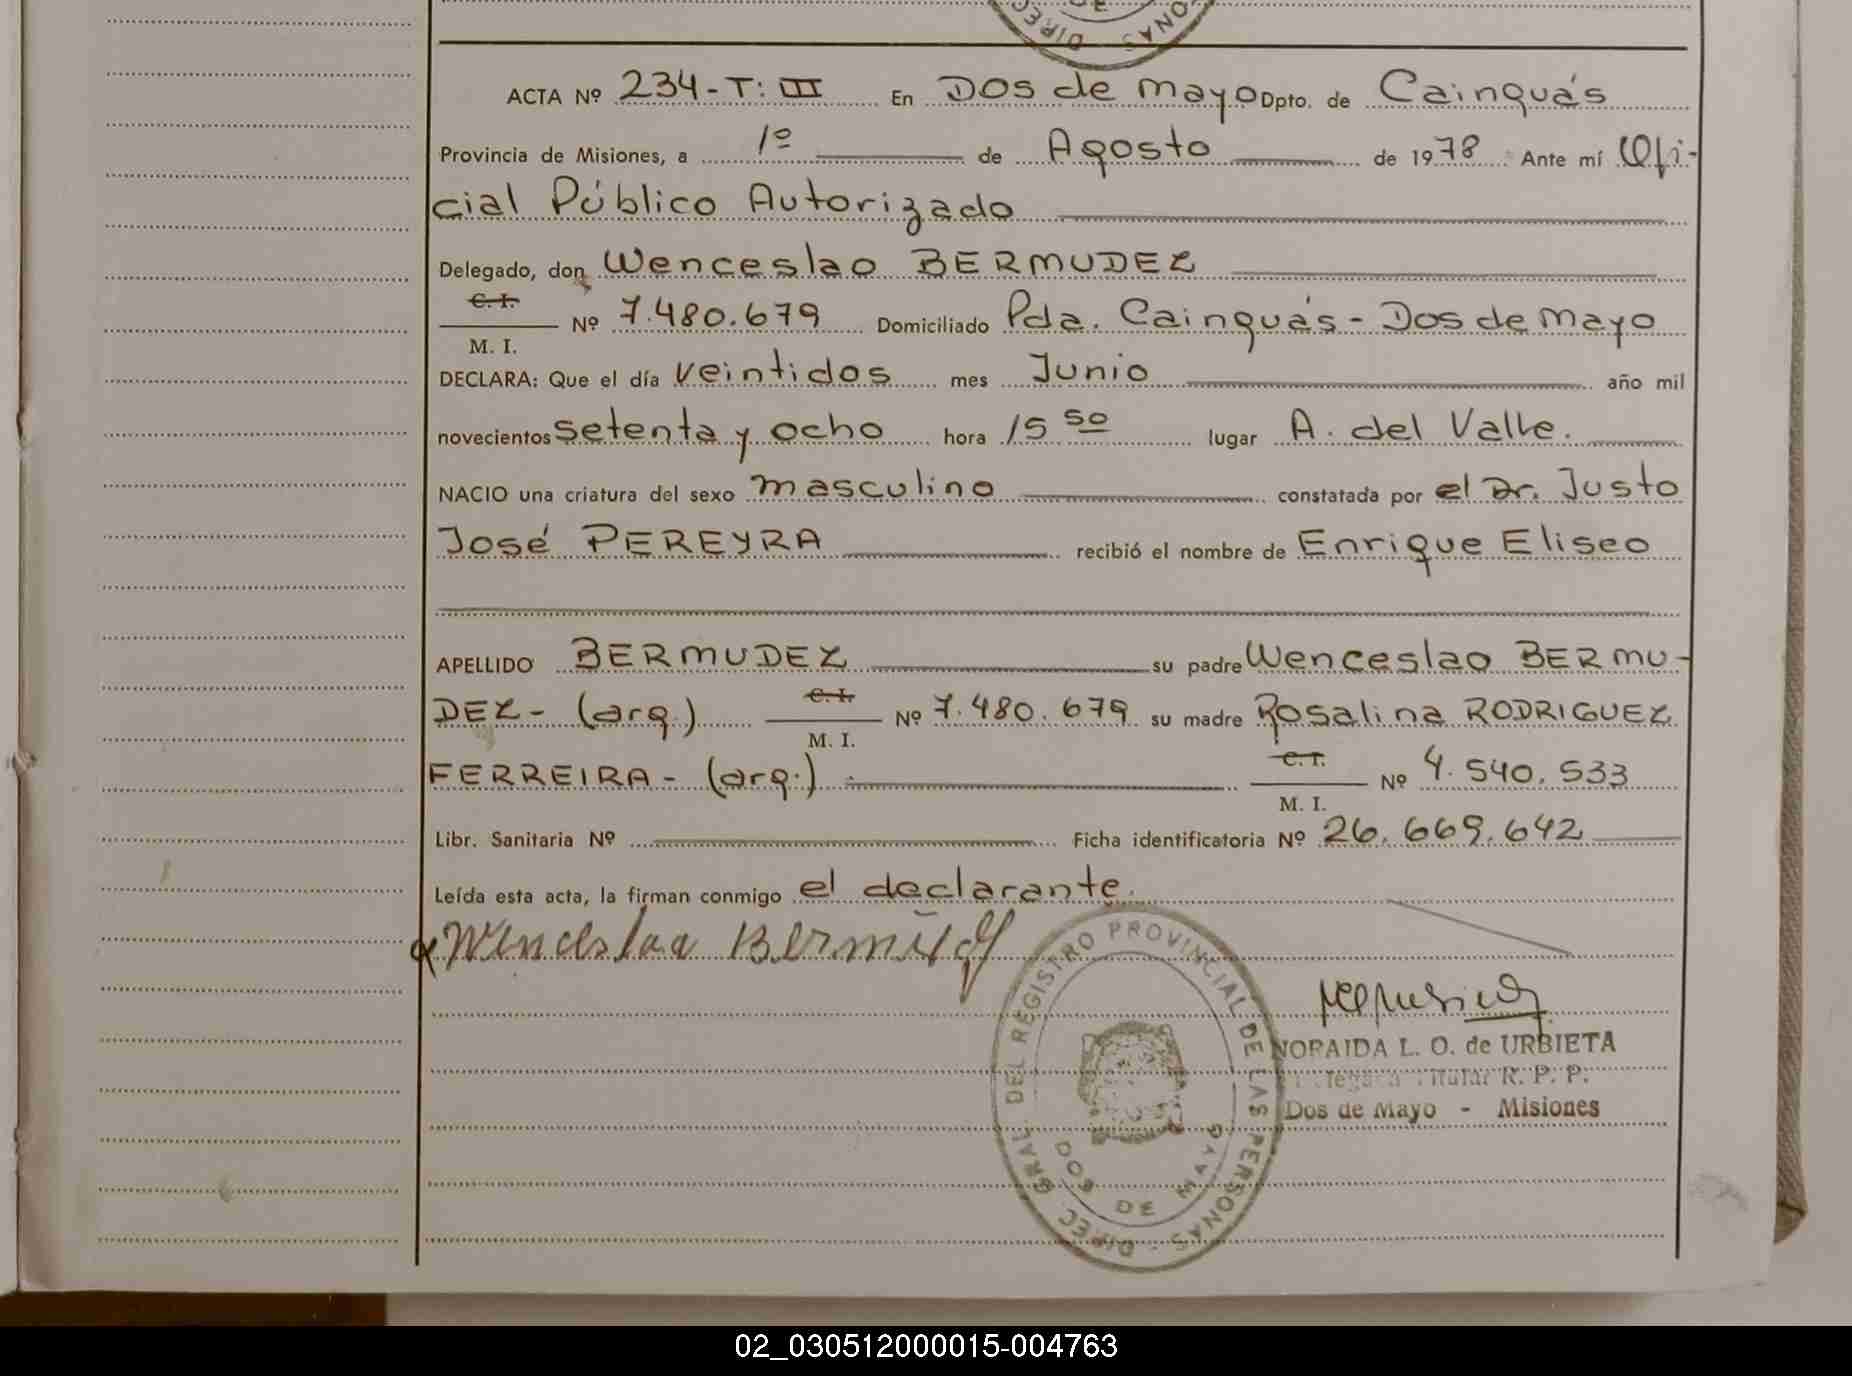 DIREC
DE
NAS
ACTA Nº 234-T: III En DOS de mayo Dpto. de Cainguás
Provincia de Misiones, a 1º de Agosto de 1978 Ante mí Ofi-
cial Público Autorizado
Delegado, don Wenceslao BERMUDEZ
C. I.
M. I. Nº 7.480.679 Domiciliado Pda. Cainguás - Dos de mayo
DECLARA: Que el día veintidos mes Junio año mil
novecientos setenta y ocho hora 15 50 lugar A. del Valle.
NACIO una criatura del sexo masculino constatada por el Dr. Justo
José PEREYRA recibió el nombre de Enrique Eliseo
APELLIDO BERMUDEZ su padre Wenceslao BERMU-
DEZ - (arg.) C. I. M. I. Nº 7.480.679 su madre Rosalina RODRIGUEZ
FERREIRA - (arg.) C. I. M. I. Nº 4.540.533
Libr. Sanitaria Nº Ficha identificatoria Nº 26.669.642
Leída esta acta, la firman conmigo el declarante.
Wenceslao Bermudez
DIREC GRAL. DEL REGISTRO PROVINCIAL DE LAS PERSONAS -
DOS DE MAYO
NORAIDA L. O. de URBIETA
Delegada Titular R. P. P.
Dos de Mayo - Misiones
02_030512000015-004763